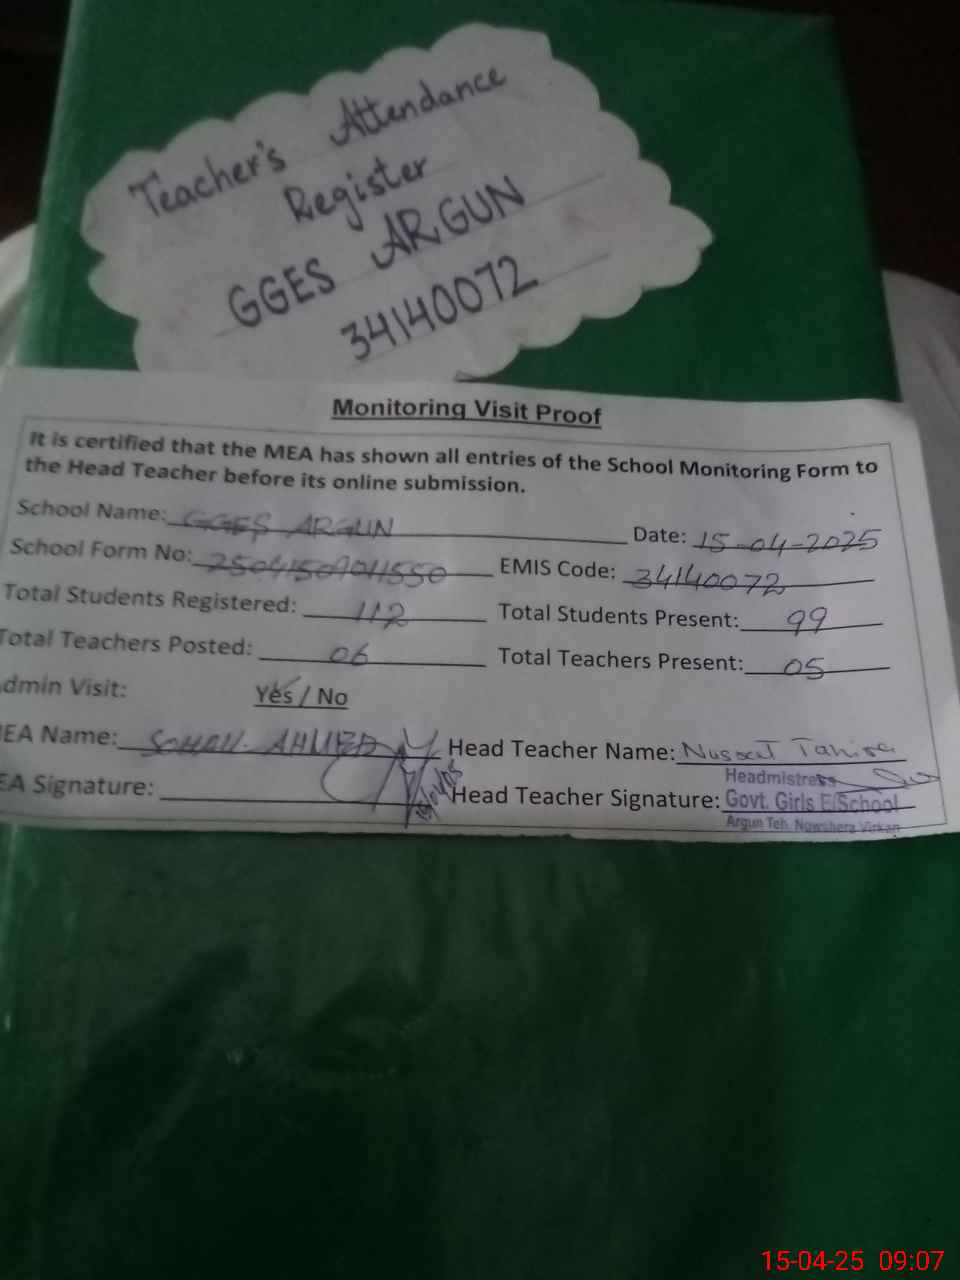 Teacher's Attendance
Register
GGES ARGUN
34140072
Monitoring Visit Proof
It is certified that the MEA has shown all entries of the School Monitoring Form to
the Head Teacher before its online submission.
School Name: GGES ARGUN Date: 15-04-2025
School Form No: 25041509011550 EMIS Code: 34140072
Total Students Registered: 112 Total Students Present: 99
Total Teachers Posted: 06 Total Teachers Present: 05
dmin Visit: Yes / No
EA Name: SOHAIL AHMED Head Teacher Name: Nusrat Tahira
EA Signature: Head Teacher Signature:
Headmistress
Govt. Girls E/School
Argun Teh. Nowshera Virkan
15-04-25 09:07